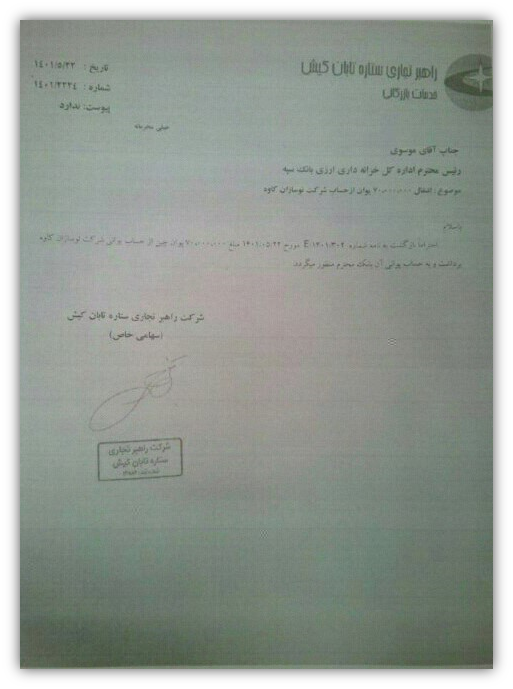 راهبر تجاری ستاره تابان کیش
خدمات بازرگانی
تاریخ : ۱٤۰۱/٥/۲۳
شماره : ۱٤۰۱/۲۳۳٤
پیوست: ندارد
خیلی محرمانه
جناب آقای موسوی
رئیس محترم اداره کل خزانه داری ارزی بانک سپه
موضوع : انتقال ۷۰،۰۰۰،۰۰۰ یوان از حساب شرکت نوسازان کاوه
باسلام
احتراما بازگشت به نامه شماره E/۱٤۰۱/۳۰۲ مورخ ۱٤۰۱/۰٥/۲۲ مبلغ ۷۰،۰۰۰،۰۰۰ یوان چین از حساب یوانی شرکت نوسازان کاوه
برداشت و به حساب یوانی آن بانک محترم منظور میگردد
شرکت راهبر تجاری ستاره تابان کیش
(سهامی خاص)
شرکت راهبر تجاری
ستاره تابان کیش